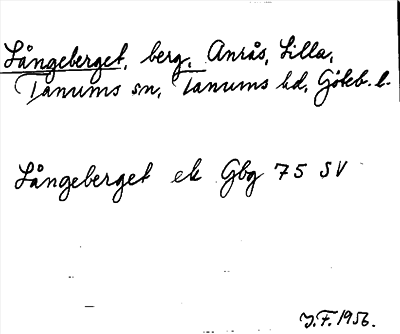 Långeberget, berg, Anrås, Lilla,
Tanums sn, Tanums hd, Göteb. l.
Långeberget ek Gbg 75 SV
J.F. 1956.